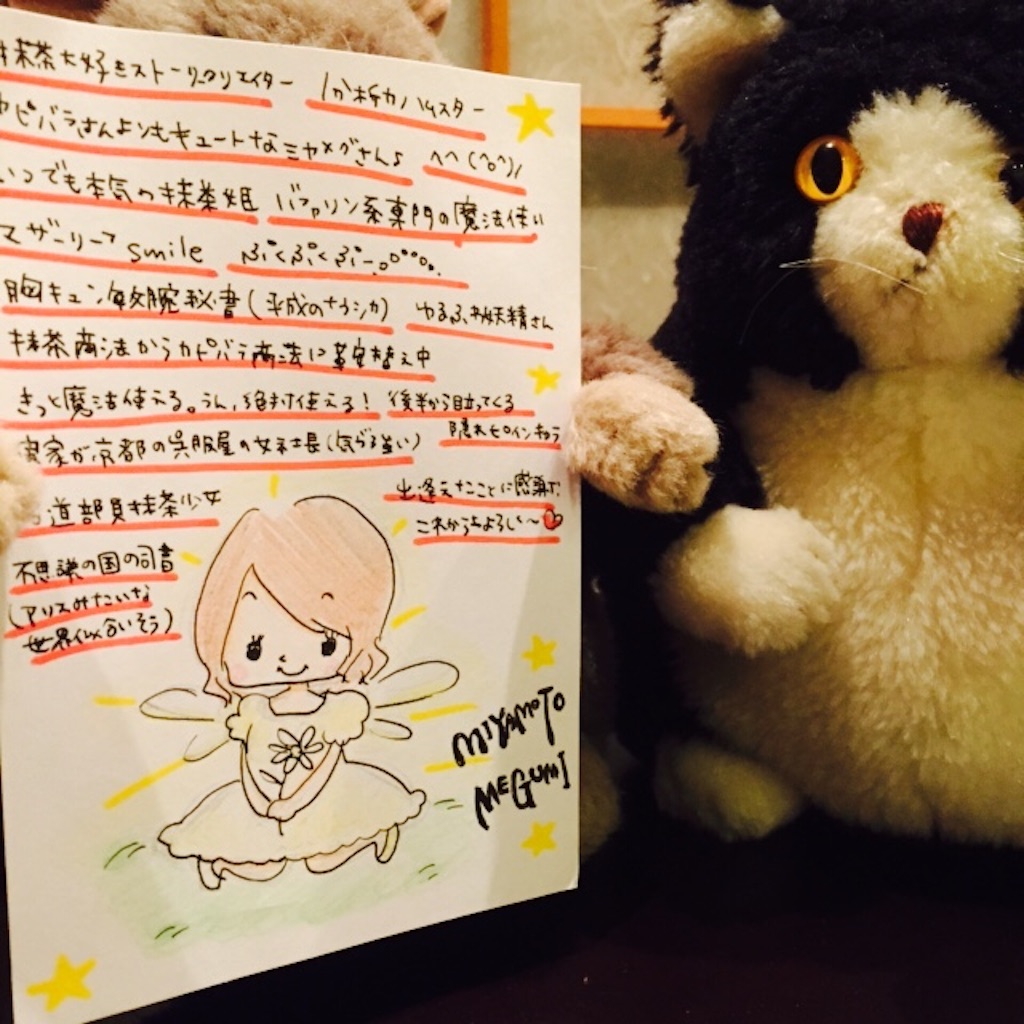 抹茶大好きストーリークリエイター 1分析力ハムスター
カピバラさんよりもキュートなミヤメグさん♪ ^^(^o^)/
いつでも本気の抹茶姫 バファリン系専門の魔法使い
マザーリーフ smile ぷくぷくぷー.。○○○○。.
胸キュン敏腕秘書(平成のナウシカ) ゆるふわ妖精さん
抹茶商法からカピバラ商法に鞍替え中
きっと魔法使える。うん、絶対使える! 後半から目立ってくる
隠れヒロインキャラ
実家が京都の呉服屋の女社長(気づかい強い)
道部員抹茶少女
出逢えたことに感謝です
これからもよろしく〜♡
不思議の国の司書
(アリスみたいな
世界似合いそう)
MIYAMOTO
MEGUMI